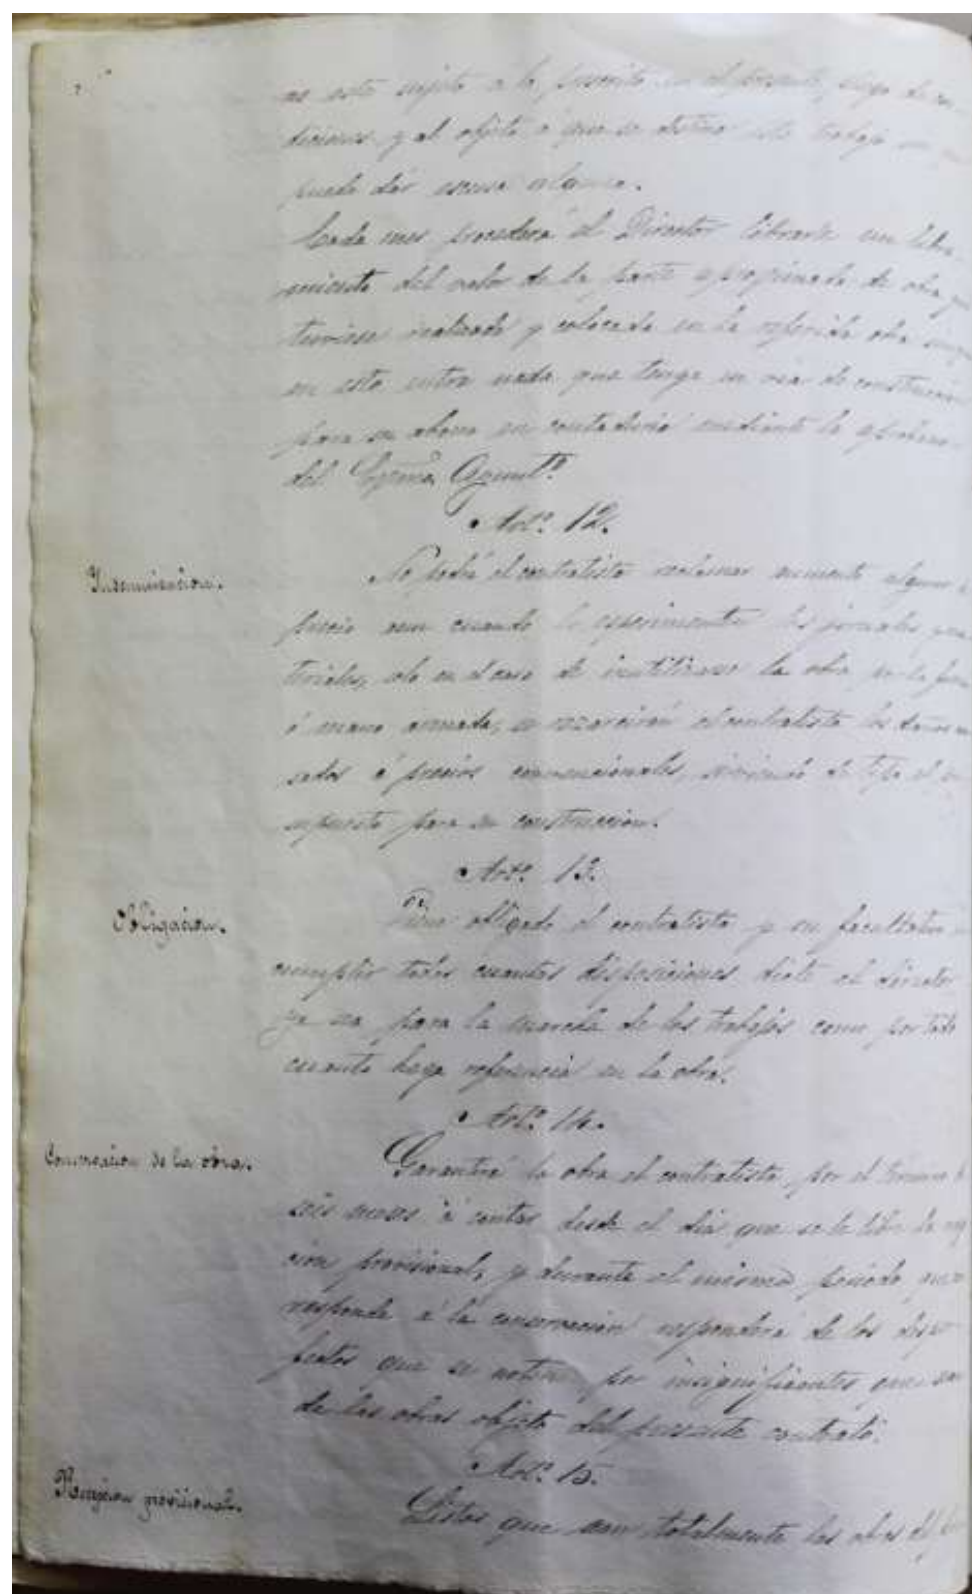 no esté sujeto a lo prescrito en el presente pliego de con-
diciones y al objeto a que se destina este trabajo sin que
pueda dár escusa alguna.
Cada mes procederá el Director librará un libra-
miento del valor de la parte aproximada de obra que
tuviese realizada y colocada en la referida obra sin que
en esto entre nada que tenga en vias de construccion
para su abono en contaduria mediante la aprobacion
del Exmo. Ayuntº.
Artº. 12.
Indemnizacion.
No podrá el contratista reclamar aumento alguno
precio aun cuando lo esperimenten los jornales y ma
teriales, solo en el caso de inutilizarse la obra por la fuerza
ó mano armada, se rezarcirán al contratista los daños cau
sados á precios convencionales, sirviendo de tipo el
supuesto para su construccion.
Artº. 13.
Obligacion.
Viene obligado el contratista y su facultativo
cumplir todas cuantas disposiciones dicte el director
ya sea para la marcha de los trabajos como por todo
cuanto haga referencia en la obra.
Artº. 14.
Conservacion de la obra.
Garantirá la obra el contratista, por el termino de
seis meses á contar desde el dia que se le libre la
cion provisional, y durante el mismo periodo que
responde á la conservacion responderá de los desper
fectos que se noten por insignificantes que sean
de las obras objeto del presente contrato.
Artº. 15.
Recepcion provisional.
Listas que sean totalmente las obras